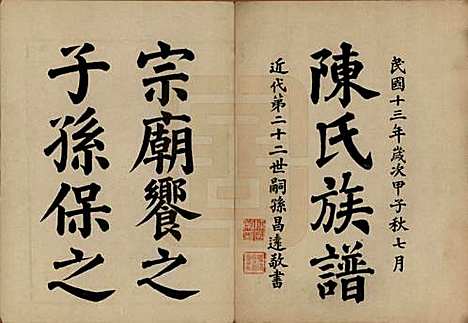 民國十三年歲次甲子秋七月
陳氏族譜
近代第二十二世嗣孫昌達敬書
宗廟饗之
子孫保之